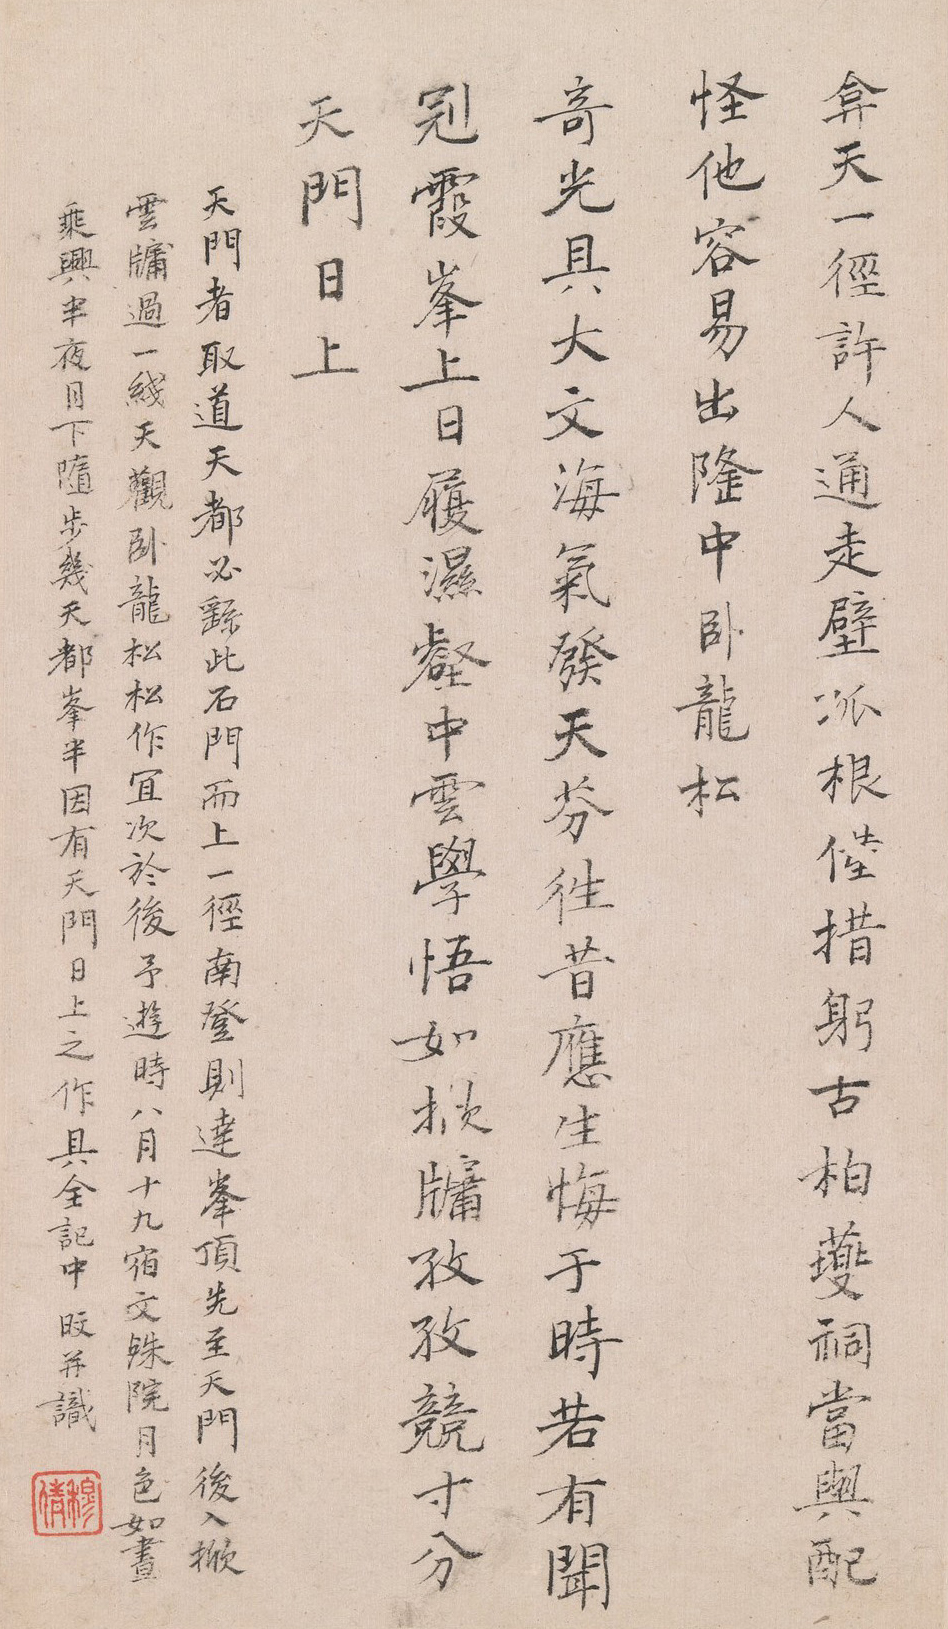 弇天一徑許人通走壁孤根倦措躬古柏夔祠當與配
怪他容易出隆中臥龍松
奇光具大文海氣發天芬往昔應生悔于時若有聞
冠霞峯上日履濕壑中雲學悟如掀牗孜孜競寸分
天門日上
天門者取道天都必繇此石門而上一徑南登則達峯頂先至天門後入掀
雲牗過一綫天觀臥龍松松作宜次於後予遊時八月十九宿文殊院月色如晝
乘興半夜月下隨步幾天都峯半因有天門日上之作具全記中旼并識
穆倩